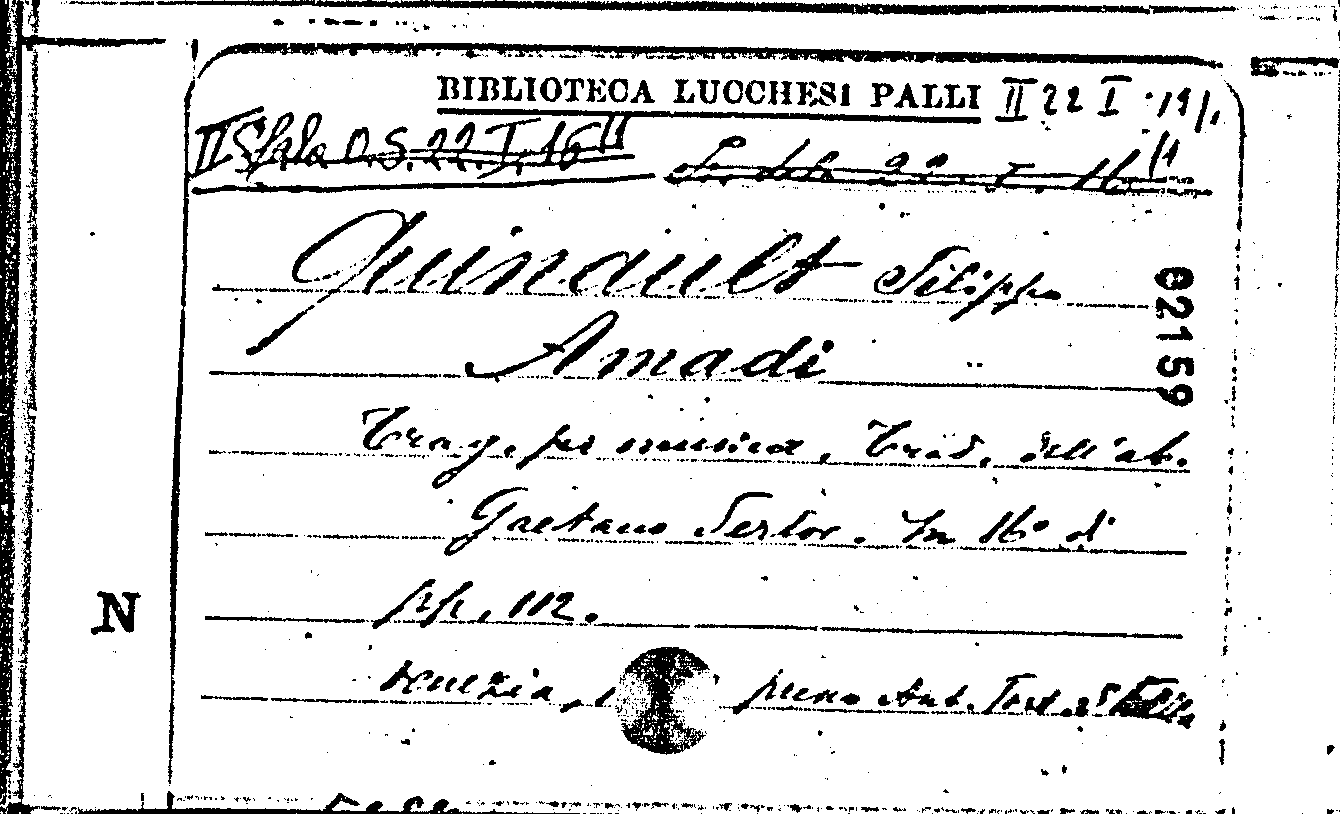 BIBLIOTECA LUCCHESI PALLI II 22 I 19/1.
II Sala O.S. 22. I. 16 11
22. I. 16 11
Quinault Filippo
Amadi
02159
Trag. per musica. Trad. dell'ab.
Gaetano Sertor. In 16° di
pp. 112.
N
Venezia, presso Ant. Fort.